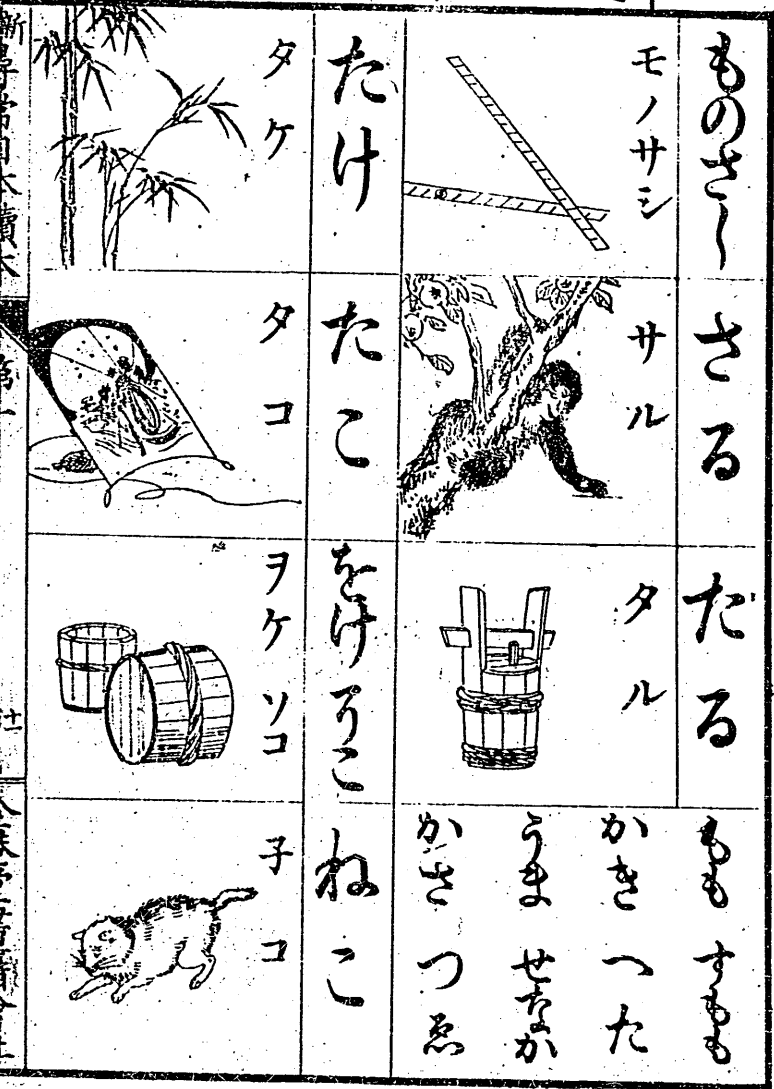 ものさし
モノサシ
さる
サル
たる
タル
もも すもも
かき へた
うま せなか
かさ つゑ
たけ
タケ
たこ
タコ
をけ そこ
ヲケ ソコ
ねこ
子コ